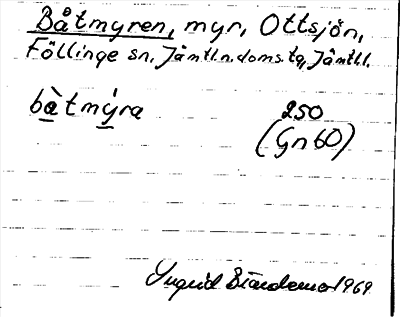 Båtmyren, myr, Ottsjön,
Föllinge sn, Jämtl.n.doms.tg, Jämtl.
bàtmýra 250
(Gn 60)
Ingrid 1969